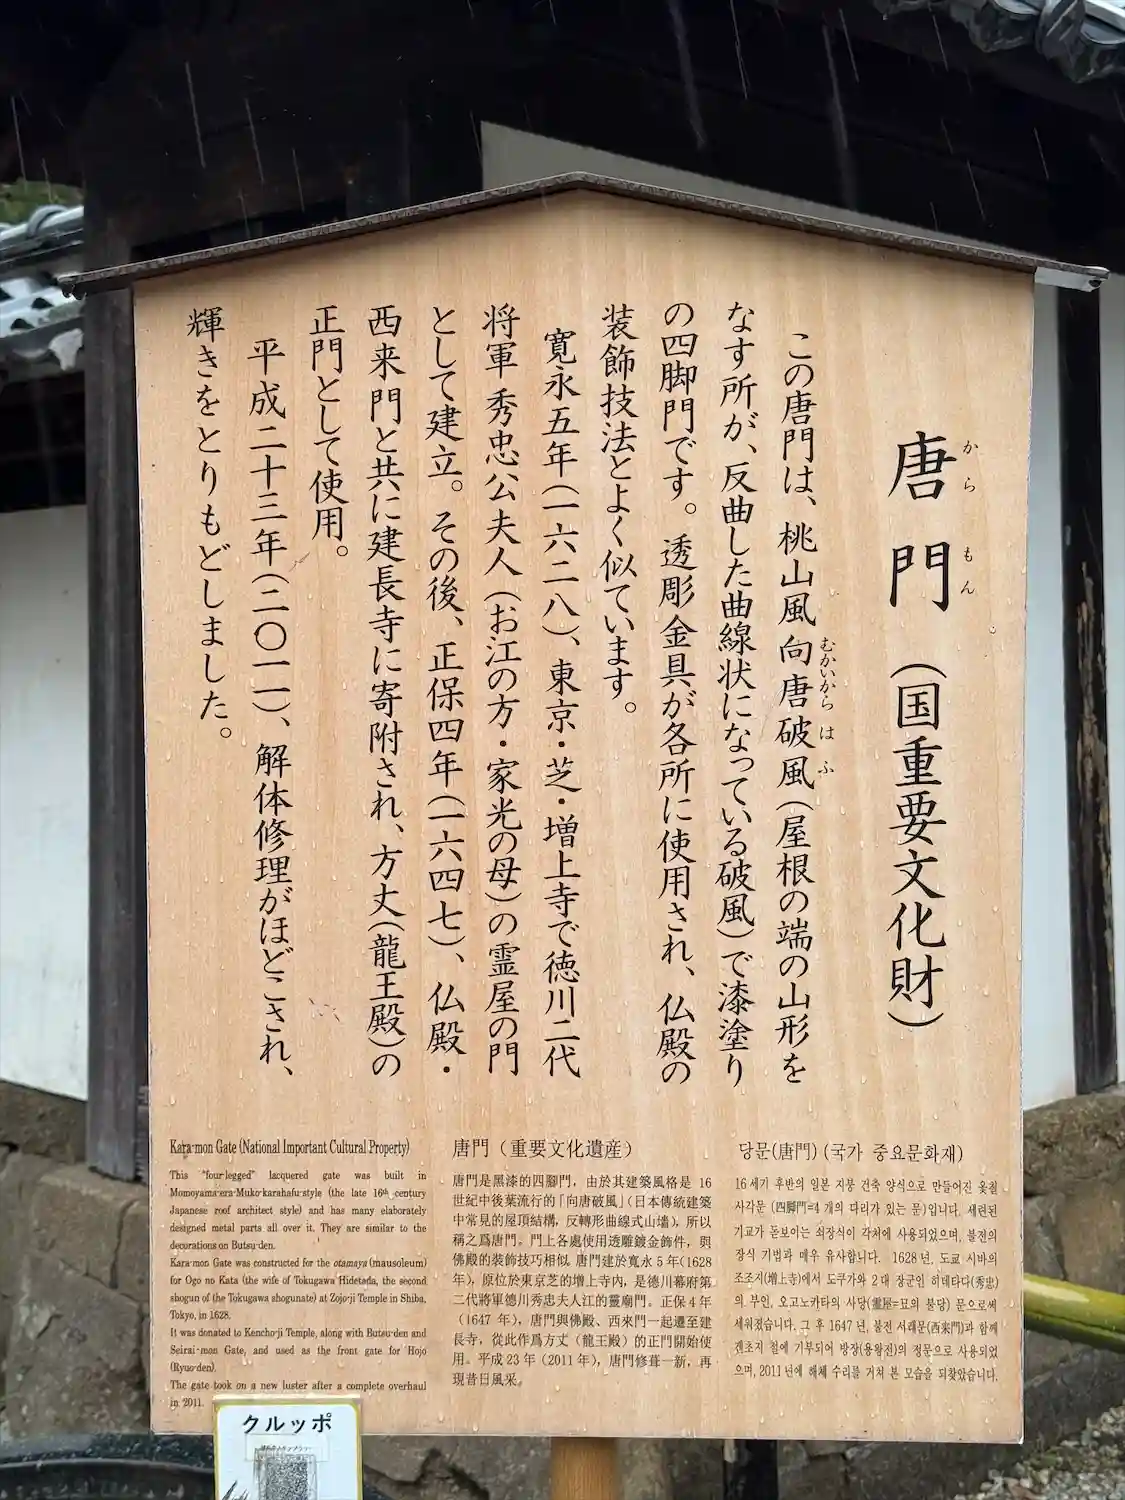 唐門（国重要文化財）
からもん
この唐門は、桃山風向唐破風（屋根の端の山形を
むかいからはふ
なす所が、反曲した曲線状になっている破風）で漆塗り
の四脚門です。透彫金具が各所に使用され、仏殿の
装飾技法とよく似ています。
寛永五年（一六二八）、東京・芝・増上寺で徳川二代
将軍秀忠公夫人（お江の方・家光の母）の霊屋の門
として建立。その後、正保四年（一六四七）、仏殿・
西来門と共に建長寺に寄附され、方丈（龍王殿）の
正門として使用。
平成二十三年（二〇一一）、解体修理がほどこされ、
輝きをとりもどしました。
Kara-mon Gate (National Important Cultural Property)
This "four-legged" lacquered gate was built in
Momoyama-era-Muko-karahafu-style (the late 16th century
Japanese roof architect style) and has many elaborately
designed metal parts all over it. They are similar to the
decorations on Butsu-den.
Kara-mon Gate was constructed for the otamaya (mausoleum)
for Ogo no Kata (the wife of Tokugawa Hidetada, the second
shogun of the Tokugawa shogunate) at Zojo-ji Temple in Shiba,
Tokyo, in 1628.
It was donated to Kencho-ji Temple, along with Butsu-den and
Seirai-mon Gate, and used as the front gate for Hojo
(Ryuo-den).
The gate took on a new luster after a complete overhaul
in 2011.
唐門（重要文化遺産）
唐門是黑漆的四腳門，由於其建築風格是 16
世紀中後葉流行的「向唐破風」（日本傳統建築
中常見的屋頂結構，反轉形曲線式山墻），所以
稱之爲唐門。門上各處使用透雕鍍金飾件，與
佛殿的裝飾技巧相似。唐門建於寬永 5 年（1628
年），原位於東京芝的增上寺內，是德川幕府第
二代將軍德川秀忠夫人江的靈廟門。正保 4 年
（1647 年），唐門與佛殿、西來門一起遷至建
長寺，從此作爲方丈（龍王殿）的正門開始使
用。平成 23 年（2011 年），唐門修葺一新，再
現昔日風采。
당문(唐門) (국가 중요문화재)
16 세기 후반의 일본 지붕 건축 양식으로 만들어진 옻칠
사각문 (四脚門=4 개의 다리가 있는 문)입니다. 세련된
기교가 돋보이는 쇠장식이 각처에 사용되었으며, 불전의
장식 기법과 매우 유사합니다. 1628 년, 도쿄 시바의
조조지(增上寺)에서 도쿠가와 2 대 장군인 히데타다(秀忠)
의 부인, 오고노카타의 사당(靈屋=묘의 불당) 문으로써
세워졌습니다. 그 후 1647 년, 불전 서래문(西来門)과 함께
겐초지 절에 기부되어 방장(용왕전)의 정문으로 사용되었
으며, 2011 년에 해체 수리를 거쳐 본 모습을 되찾았습니다.
クルッポ